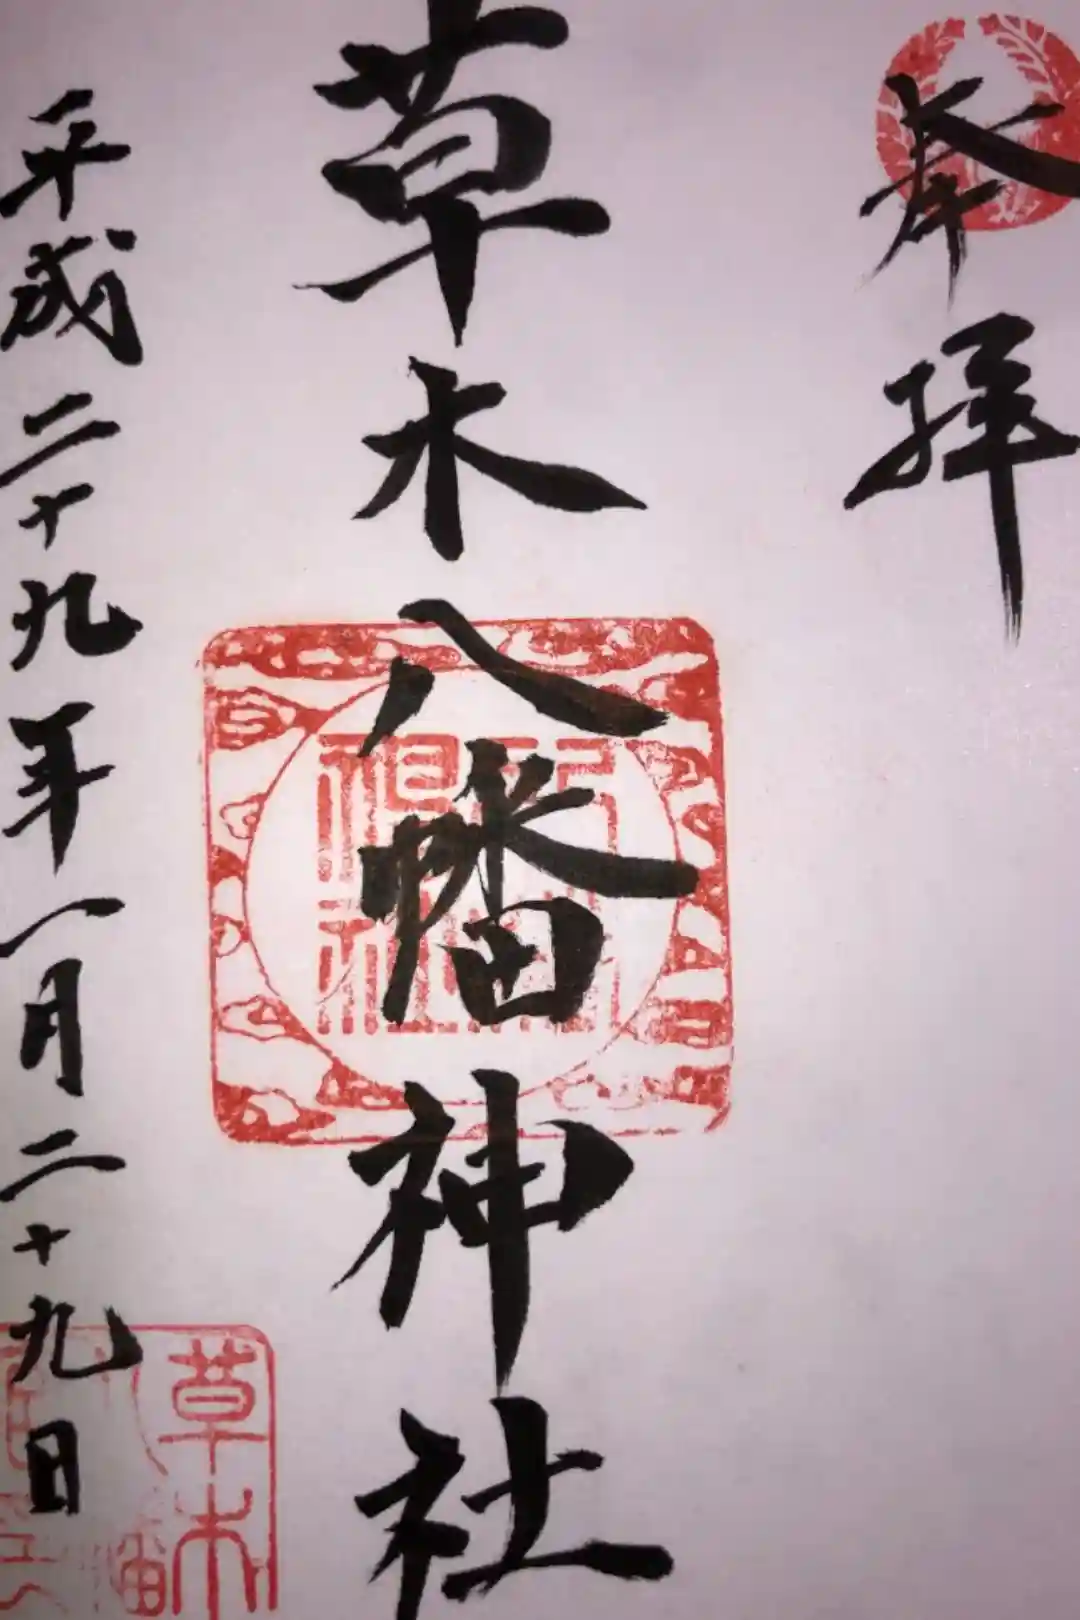 奉拝
草木八幡神社
平成二十九年一月二十九日
草木